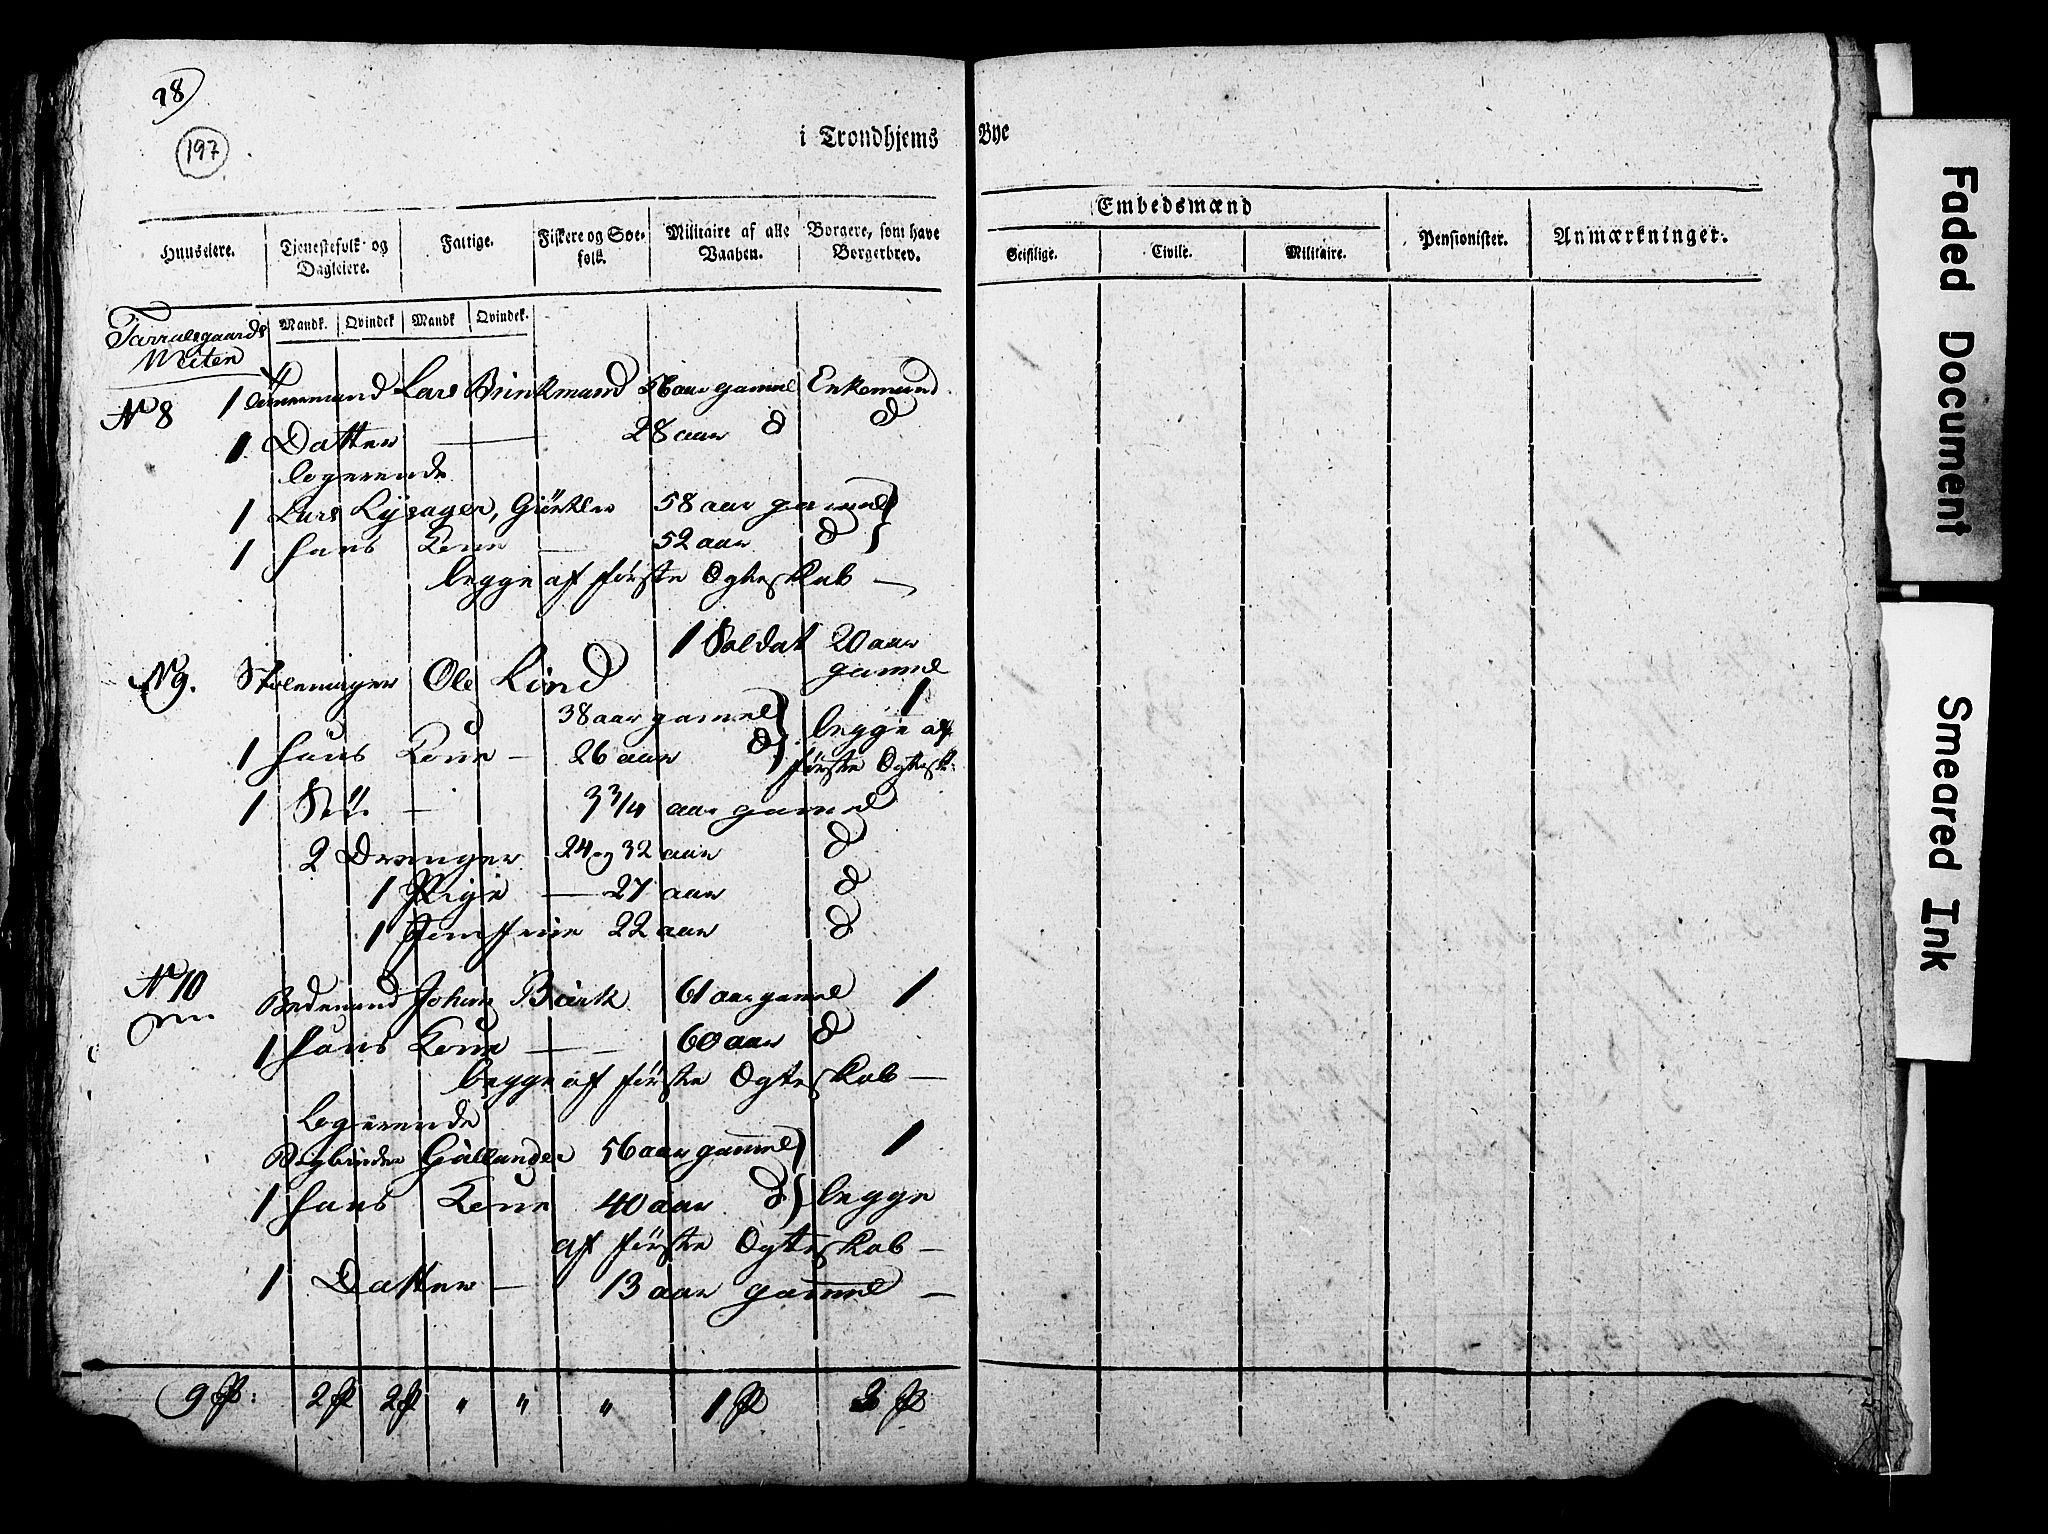 98
197
i Trondhjems Bye
Embedsmænd
Huuseiere. Tjenestefolk og Dagleiere. Fattige. Fiskere og Søefolk. Militaire af alle Vaaben. Borgere, som have Borgerbrev. Geistlige. Civile. Militaire. Pensionister. Anmærkninger.
Mandk. Qvindek Mandk Qvindek.
Farvalsgaards
Weiten
N 8 1 Tømmermand Lars Brinkmand 56 aar gamel Enkemand
1 Datter — 28 aar d d
logerende
1 Lars Lysager, Giörtler 58 aar gamel
1 hans Kone — 52 aar d
begge af første Ægteskab —
1 Soldat 20 aar
gamel
N 9. Stolemager Ole Lind
38 aar gamel 1
1 hans Kone — 26 aar d begge af
første Ægtesk:
1 — 3 3/4 aar gamel
2 Drenger 24 og 32 aar d
1 Pige — 27 aar d
1 22 aar d
N 10 Bedemand Johan 61 aar gamel 1
1 hans Kone — 60 aar d
begge af første Ægteskab —
logerende
Bogbinder Gällander 56 aar gamel 1
1 hans Kone 40 aar d begge
af første Ægteskab —
1 Datter — 13 aar gamel —
9 P: 2 P 2 P " " " 1 P 3 P
Faded Document
Smeared Ink